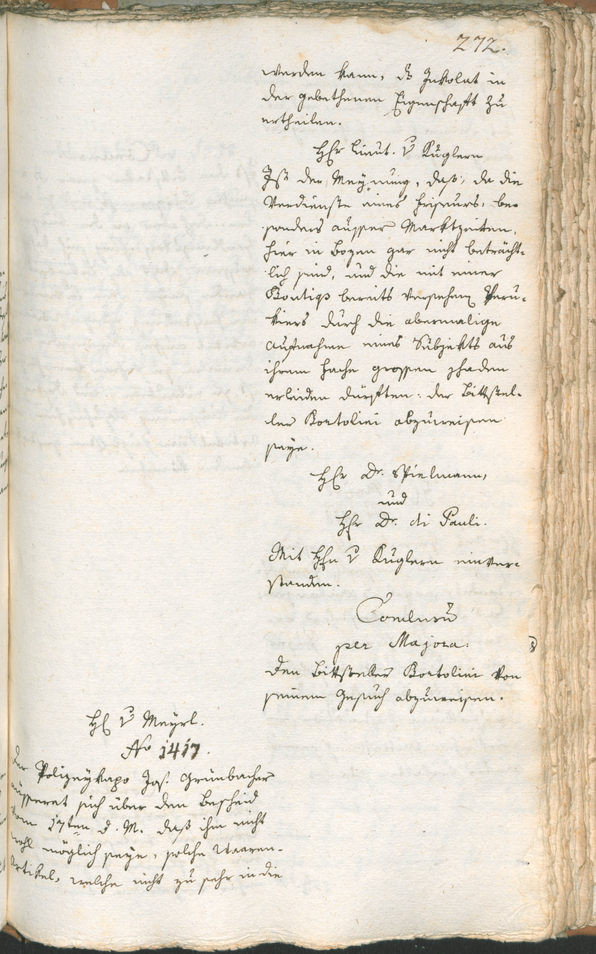 272.
werden kann, ds Inkolat in
der gebethenen Eigenschaft zu
ertheilen.
HEr Lieut. v Kuglern
Ist der Meynung, daß, da die
Verdienste eines Friseurs, be-
sonders ausser Marktzeiten,
hier in Bozen gar nicht beträcht-
lich sind, und die mit einer
Boutiqs bereits versehene Peru-
kiers durch die abermalige
Aufnahme eines Subjekts aus
ihrem Fache grossen Schaden
erleiden dürften: der Bittstel-
ler Bortolini abzuweisen
seye.
HEr Dr. Spielmann,
und
HEr Dr. di Pauli.
Mit HEn v Kuglern einver-
standen.
Conclusum
per Majora.
Den Bittsteller Bortolini von
seinem Gesuch abzuweisen.
HE v Mayrl.
No 1417.
Der Polizeykapo Jos. Grünbacher
äusseret sich über den Bescheid
vom 17ten d. M. daß ihm nicht
wohl möglich seye, solche Waaren-
Artikel, welche nicht zu sehr in die